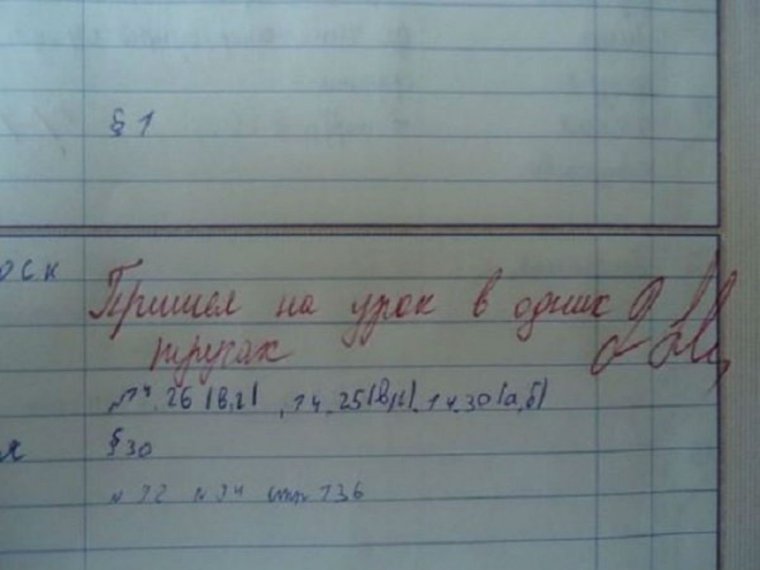 § 1
оск
Пришел на урок в одних 2
трусах
№14.26(в,г), 14.25(в,г), 14.30(а,б)
я §30
№ 92 № 94 стр 136